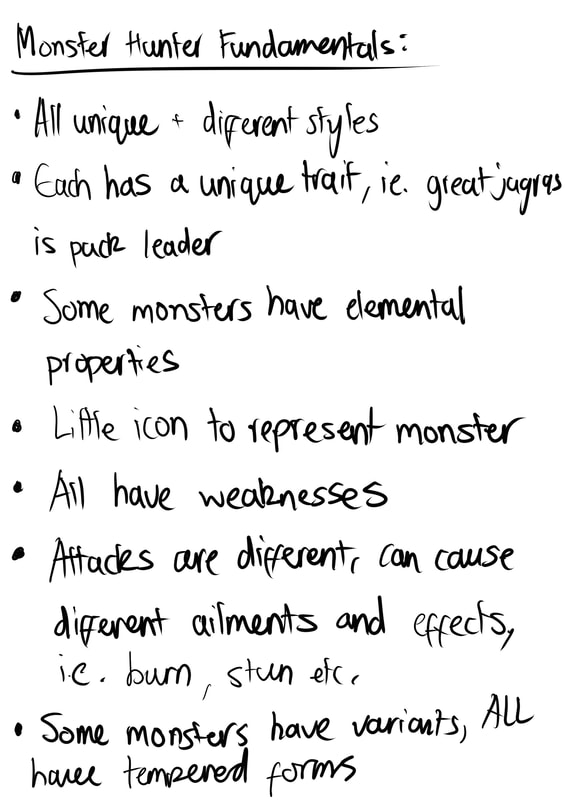 Monster Hunter Fundamentals:
• All unique + different styles
• Each has a unique trait, ie. great jagras
is pack leader
• Some monsters have elemental
properties
• Little icon to represent monster
• All have weaknesses
• Attacks are different, can cause
different ailments and effects,
i.e. burn, stun etc.
• Some monsters have variants, ALL
have tempered forms